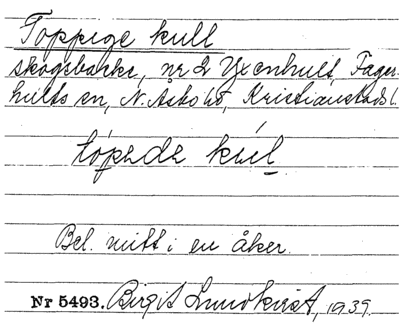 Toppige kull
skogsbacke, nr 2 Yxenhult, Fager-
hults sn, N. Åsbo hd, Kristianstads l.
Bel. mitt i en åker.
Nr 5493. Birgit Lundkvist, 1939.